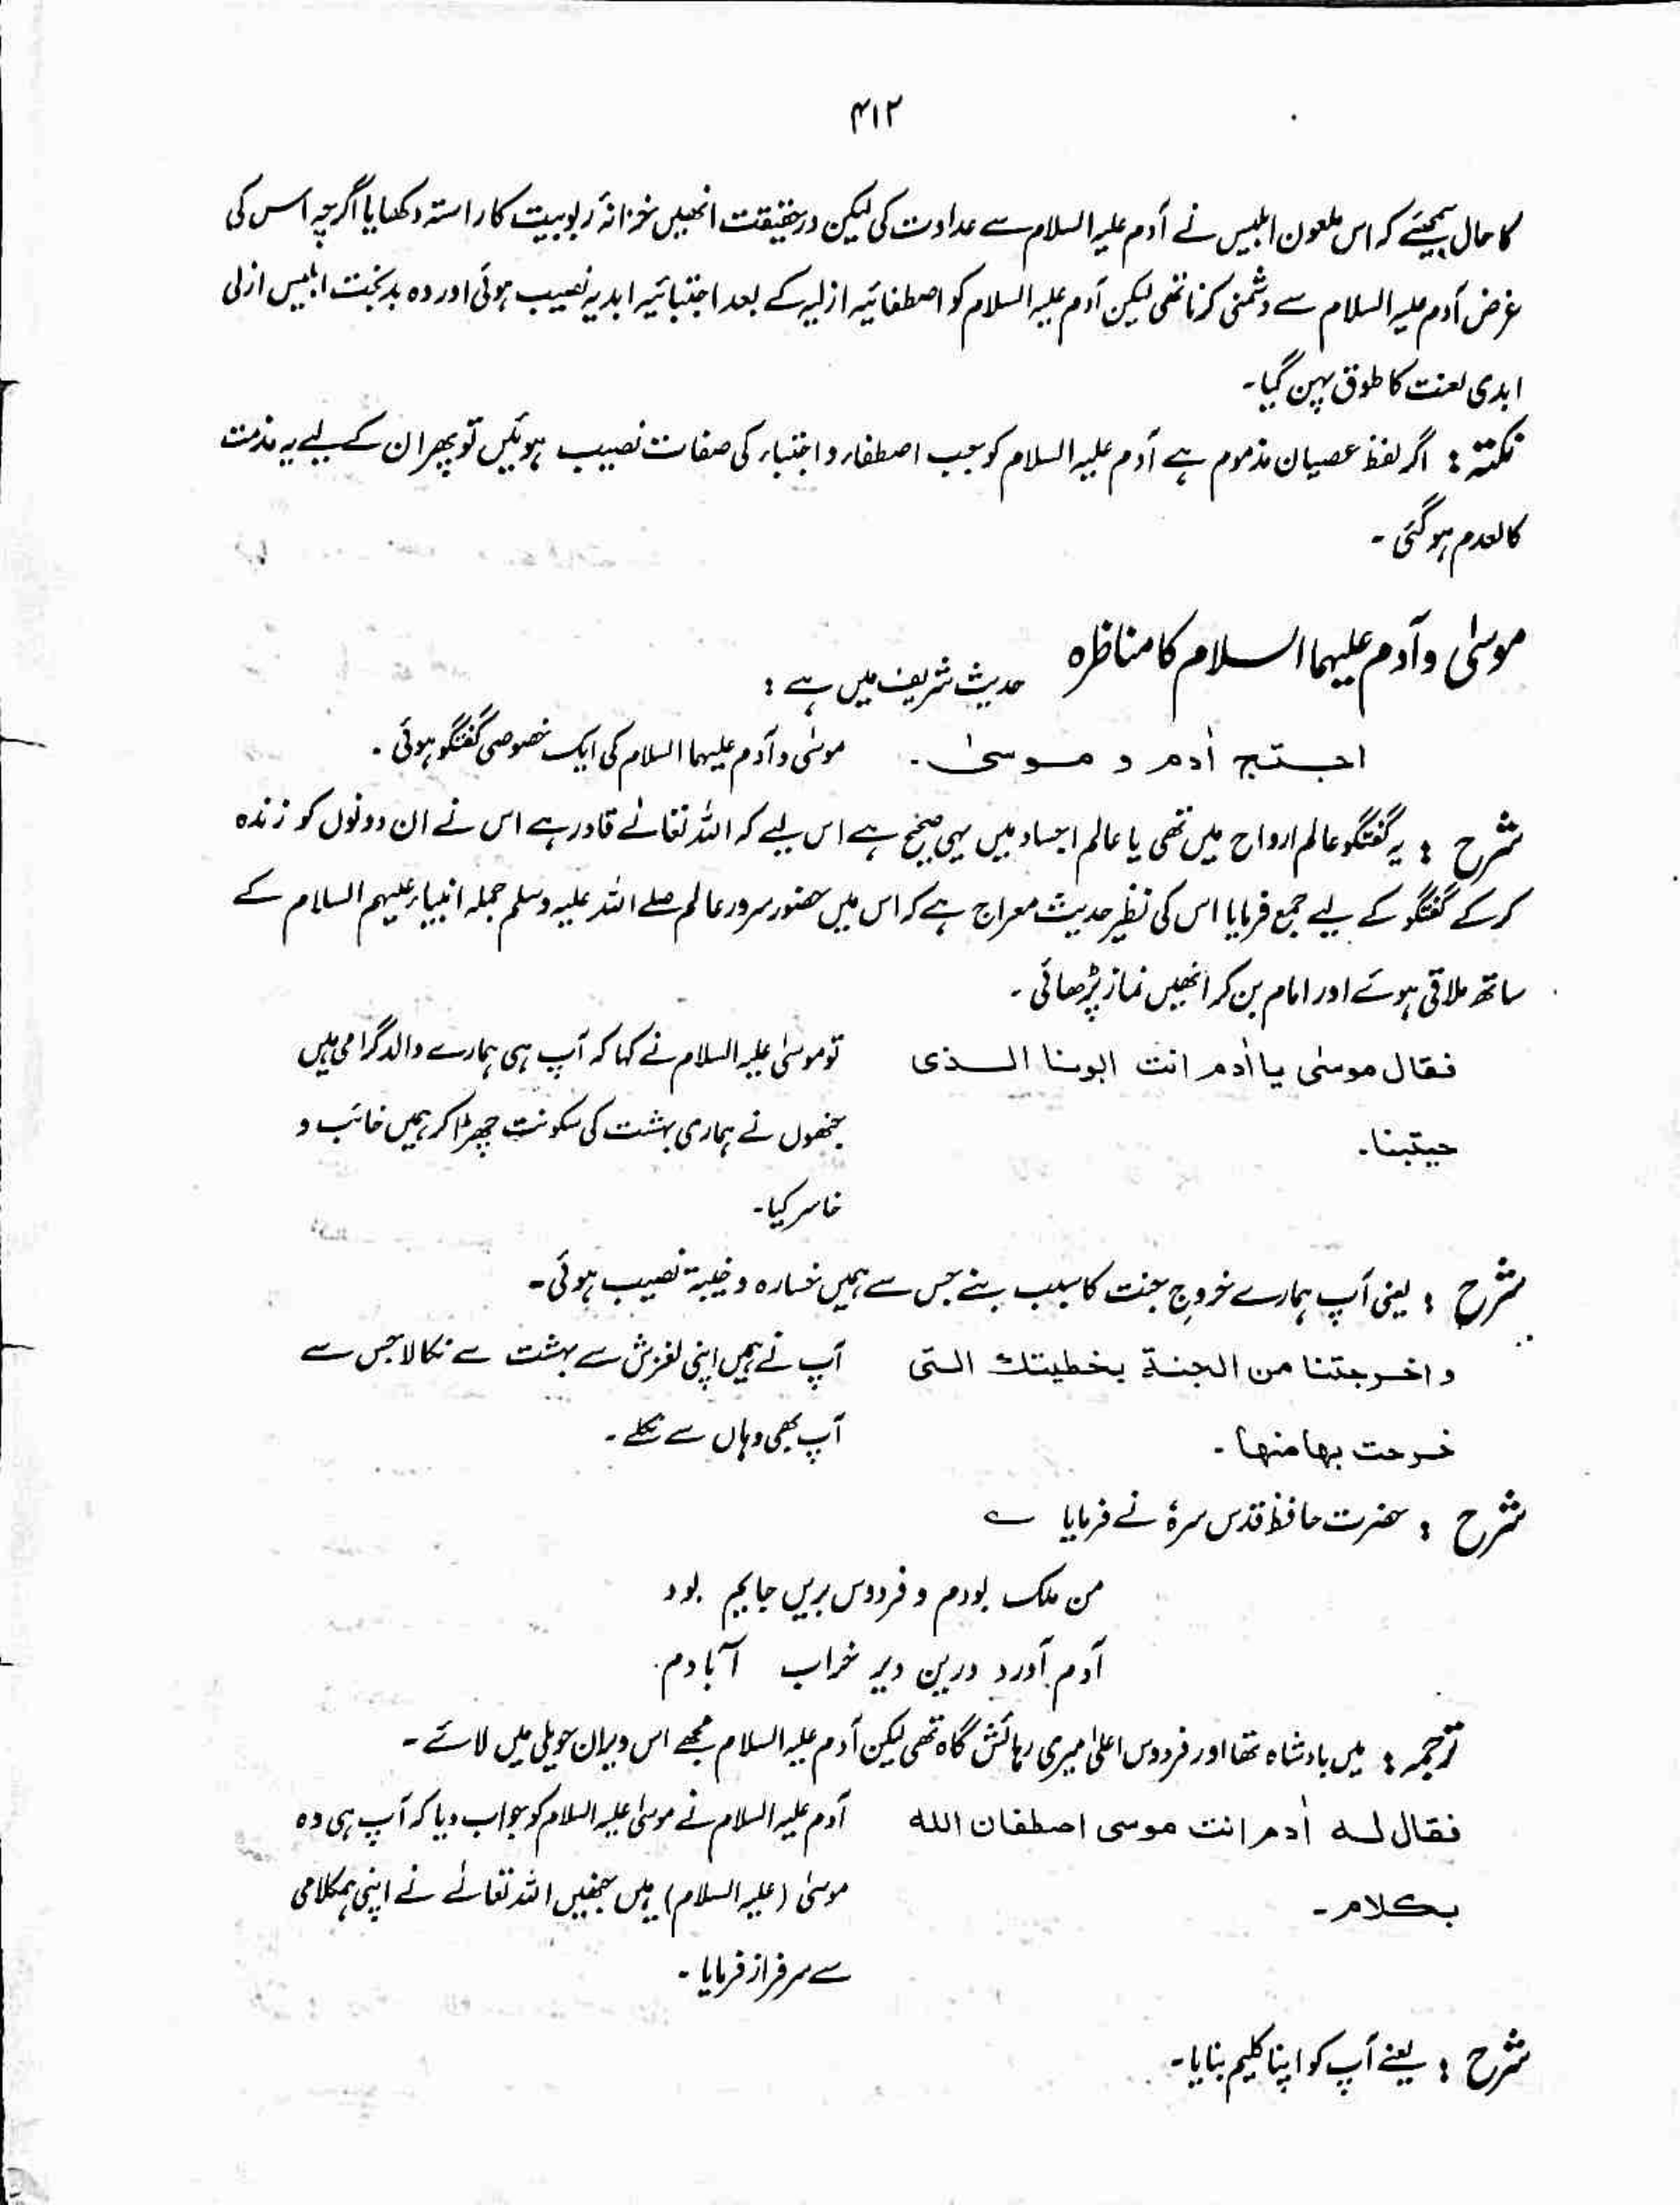 ۴۱۲
کا حال سمجھئے کہ اس ملعون ابلیس نے آدم علیہ السلام سے عداوت کی لیکن درحقیقت انھیں خزانۂ ربوبیت کا راستہ دکھایا اگرچہ اس کی
غرض آدم علیہ السلام سے دشمنی کرنا تھی لیکن آدم علیہ السلام کو اصطفائیہ ازلیہ کے بعد اجتبائیہ ابدیہ نصیب ہوئی اور وہ بدبخت ابلیس ازلی
ابدی لعنت کا طوق پہن گیا۔
نکتہ : اگر لفظ عصیان مذموم ہے آدم علیہ السلام کو جب اصطفاء و اجتباء کی صفات نصیب ہوئیں تو پھر ان کے لیے یہ مذمت
کالعدم ہو گئی ۔
موسیٰ و آدم علیہما السلام کا مناظرہ حدیث شریف میں ہے :
احتج اٰدم و موسیٰ۔ موسیٰ و آدم علیہما السلام کی ایک خصوصی گفتگو ہوئی ۔
شرح : یہ گفتگو عالم ارواح میں تھی یا عالم اجساد میں یہی صحیح ہے اس لیے کہ اللہ تعالےٰ قادر ہے اس نے ان دونوں کو زندہ
کر کے گفتگو کے لیے جمع فرمایا اس کی نظیر حدیث معراج ہے کہ اس میں حضور سرور عالم صلے اللہ علیہ وسلم جملہ انبیاء علیہم السلام کے
ساتھ ملاقی ہوئے اور امام بن کر انھیں نماز پڑھائی ۔
فقال موسٰی یا اٰدم انت ابونا الذی تو موسیٰ علیہ السلام نے کہا کہ آپ ہی ہمارے والد گرامی ہیں
حیتبنا۔ جنھوں نے ہماری بہشت کی سکونت چھڑا کر ہمیں خائب و
خاسر کیا۔
شرح : یعنی آپ ہمارے خروجِ جنت کا سبب بنے جس سے ہمیں خسارہ و خیبۃ نصیب ہوئی۔
و اخرجتنا من الجنۃ بخطیتك التی آپ نے ہمیں اپنی لغزش سے بہشت سے نکالا جس سے
خرجت بھا منھا ۔ آپ بھی وہاں سے نکلے ۔
شرح : حضرت حافظ قدس سرہٗ نے فرمایا ؎
من ملک بودم و فردوس بریں جایم بود
آدم آورد درین دیر خراب آبادم
ترجمہ : میں بادشاہ تھا اور فردوس اعلیٰ میری رہائش گاہ تھی لیکن آدم علیہ السلام مجھے اس ویران حویلی میں لائے ۔
فقال لہ اٰدم انت موسی اصطفان اللہ آدم علیہ السلام نے موسیٰ علیہ السلام کو جواب دیا کہ آپ ہی وہ
بکلام ۔ موسیٰ (علیہ السلام) ہیں جنھیں اللہ تعالےٰ نے اپنی ہمکلامی
سے سرفراز فرمایا ۔
شرح : یعنے آپ کو اپنا کلیم بنایا۔